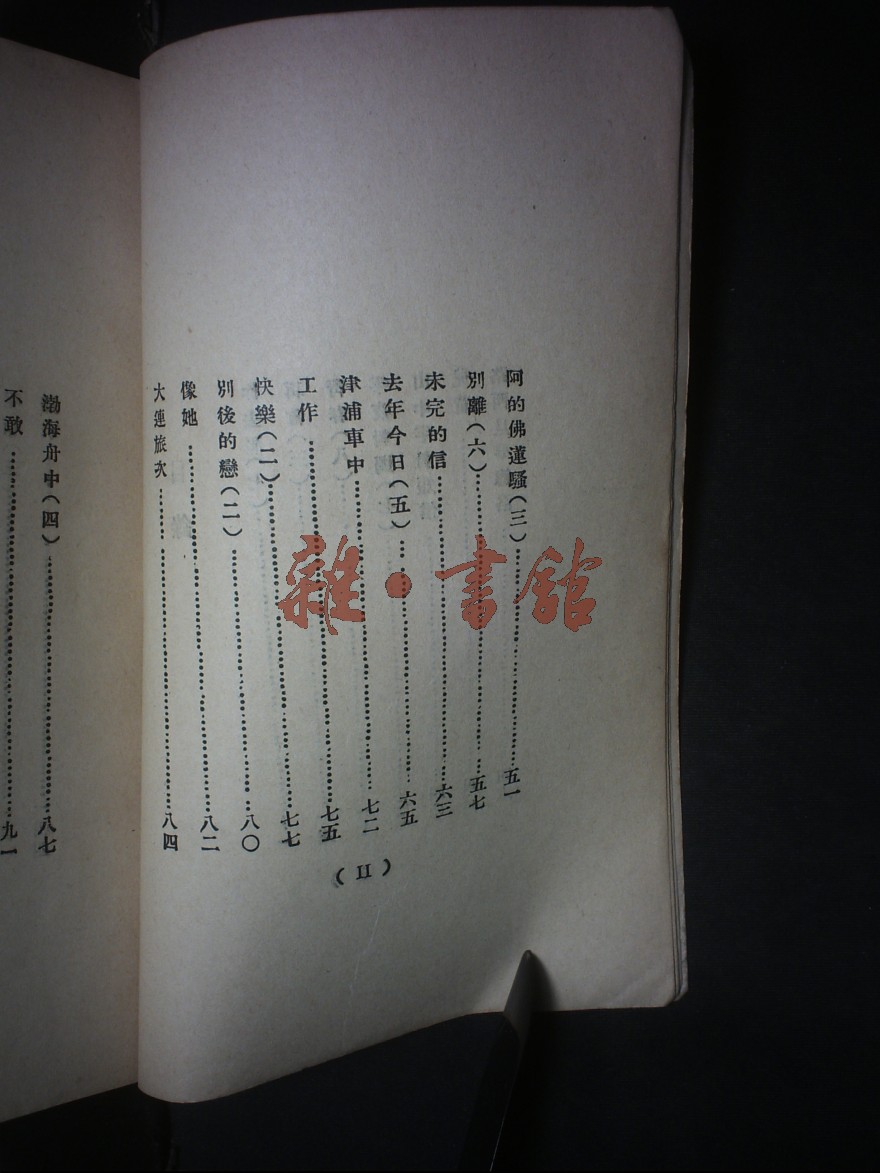 阿的佛蓮騷(三)……………………五一
別離(六)……………………五七
未完的信……………………六三
去年今日(五)……………………六五
津浦車中……………………七二
工作……………………七五
快樂(二)……………………七七
別後的戀(二)……………………八〇
像她……………………八二
大連旅次……………………八四
(II)
渤海舟中(四)……………………八七
不敢……………………九一
雜·書館